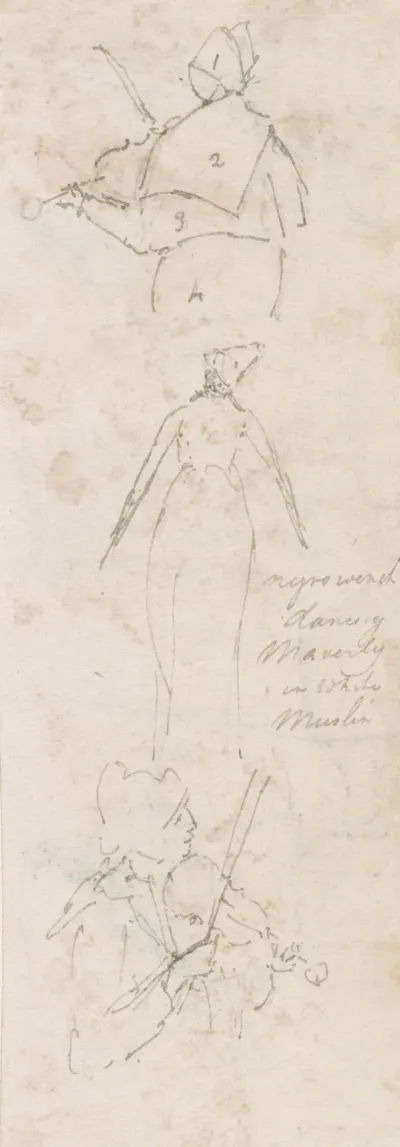 1
2
3
4
1
2
negro wench
dancing
Waverly
in White
Muslin